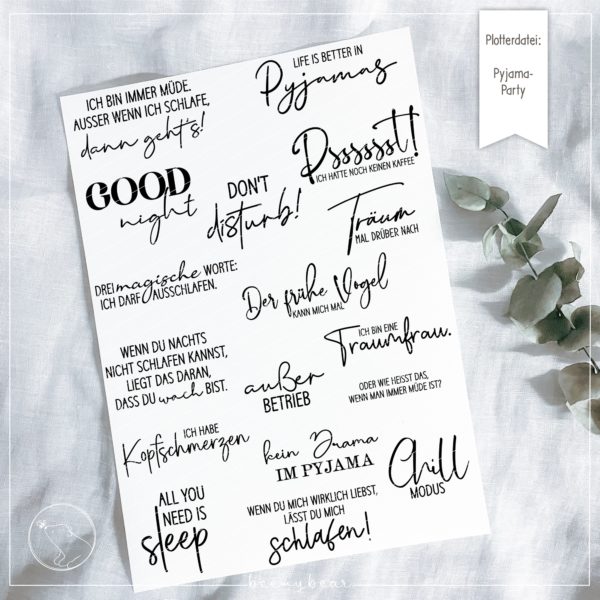 Plotterdatei:
Pyjama-
Party
ICH BIN IMMER MÜDE.
AUSSER WENN ICH SCHLAFE,
dann geht's!
LIFE IS BETTER IN
Pyjamas
GOOD
night
DON'T
disturb!
Psssssst!
ICH HATTE NOCH KEINEN KAFFEE
Träum
MAL DRÜBER NACH
DREI magische WORTE:
ICH DARF AUSSCHLAFEN.
Der frühe Vogel
KANN MICH MAL
WENN DU NACHTS
NICHT SCHLAFEN KANNST,
LIEGT DAS DARAN,
DASS DU wach BIST.
außer
BETRIEB
ICH BIN EINE
Traumfrau.
ODER WIE HEISST DAS,
WENN MAN IMMER MÜDE IST?
ICH HABE
Kopfschmerzen
kein Drama
IM PYJAMA
Chill
MODUS
ALL YOU
NEED IS
sleep
WENN DU MICH WIRKLICH LIEBST,
LÄSST DU MICH
schlafen!
beemybear